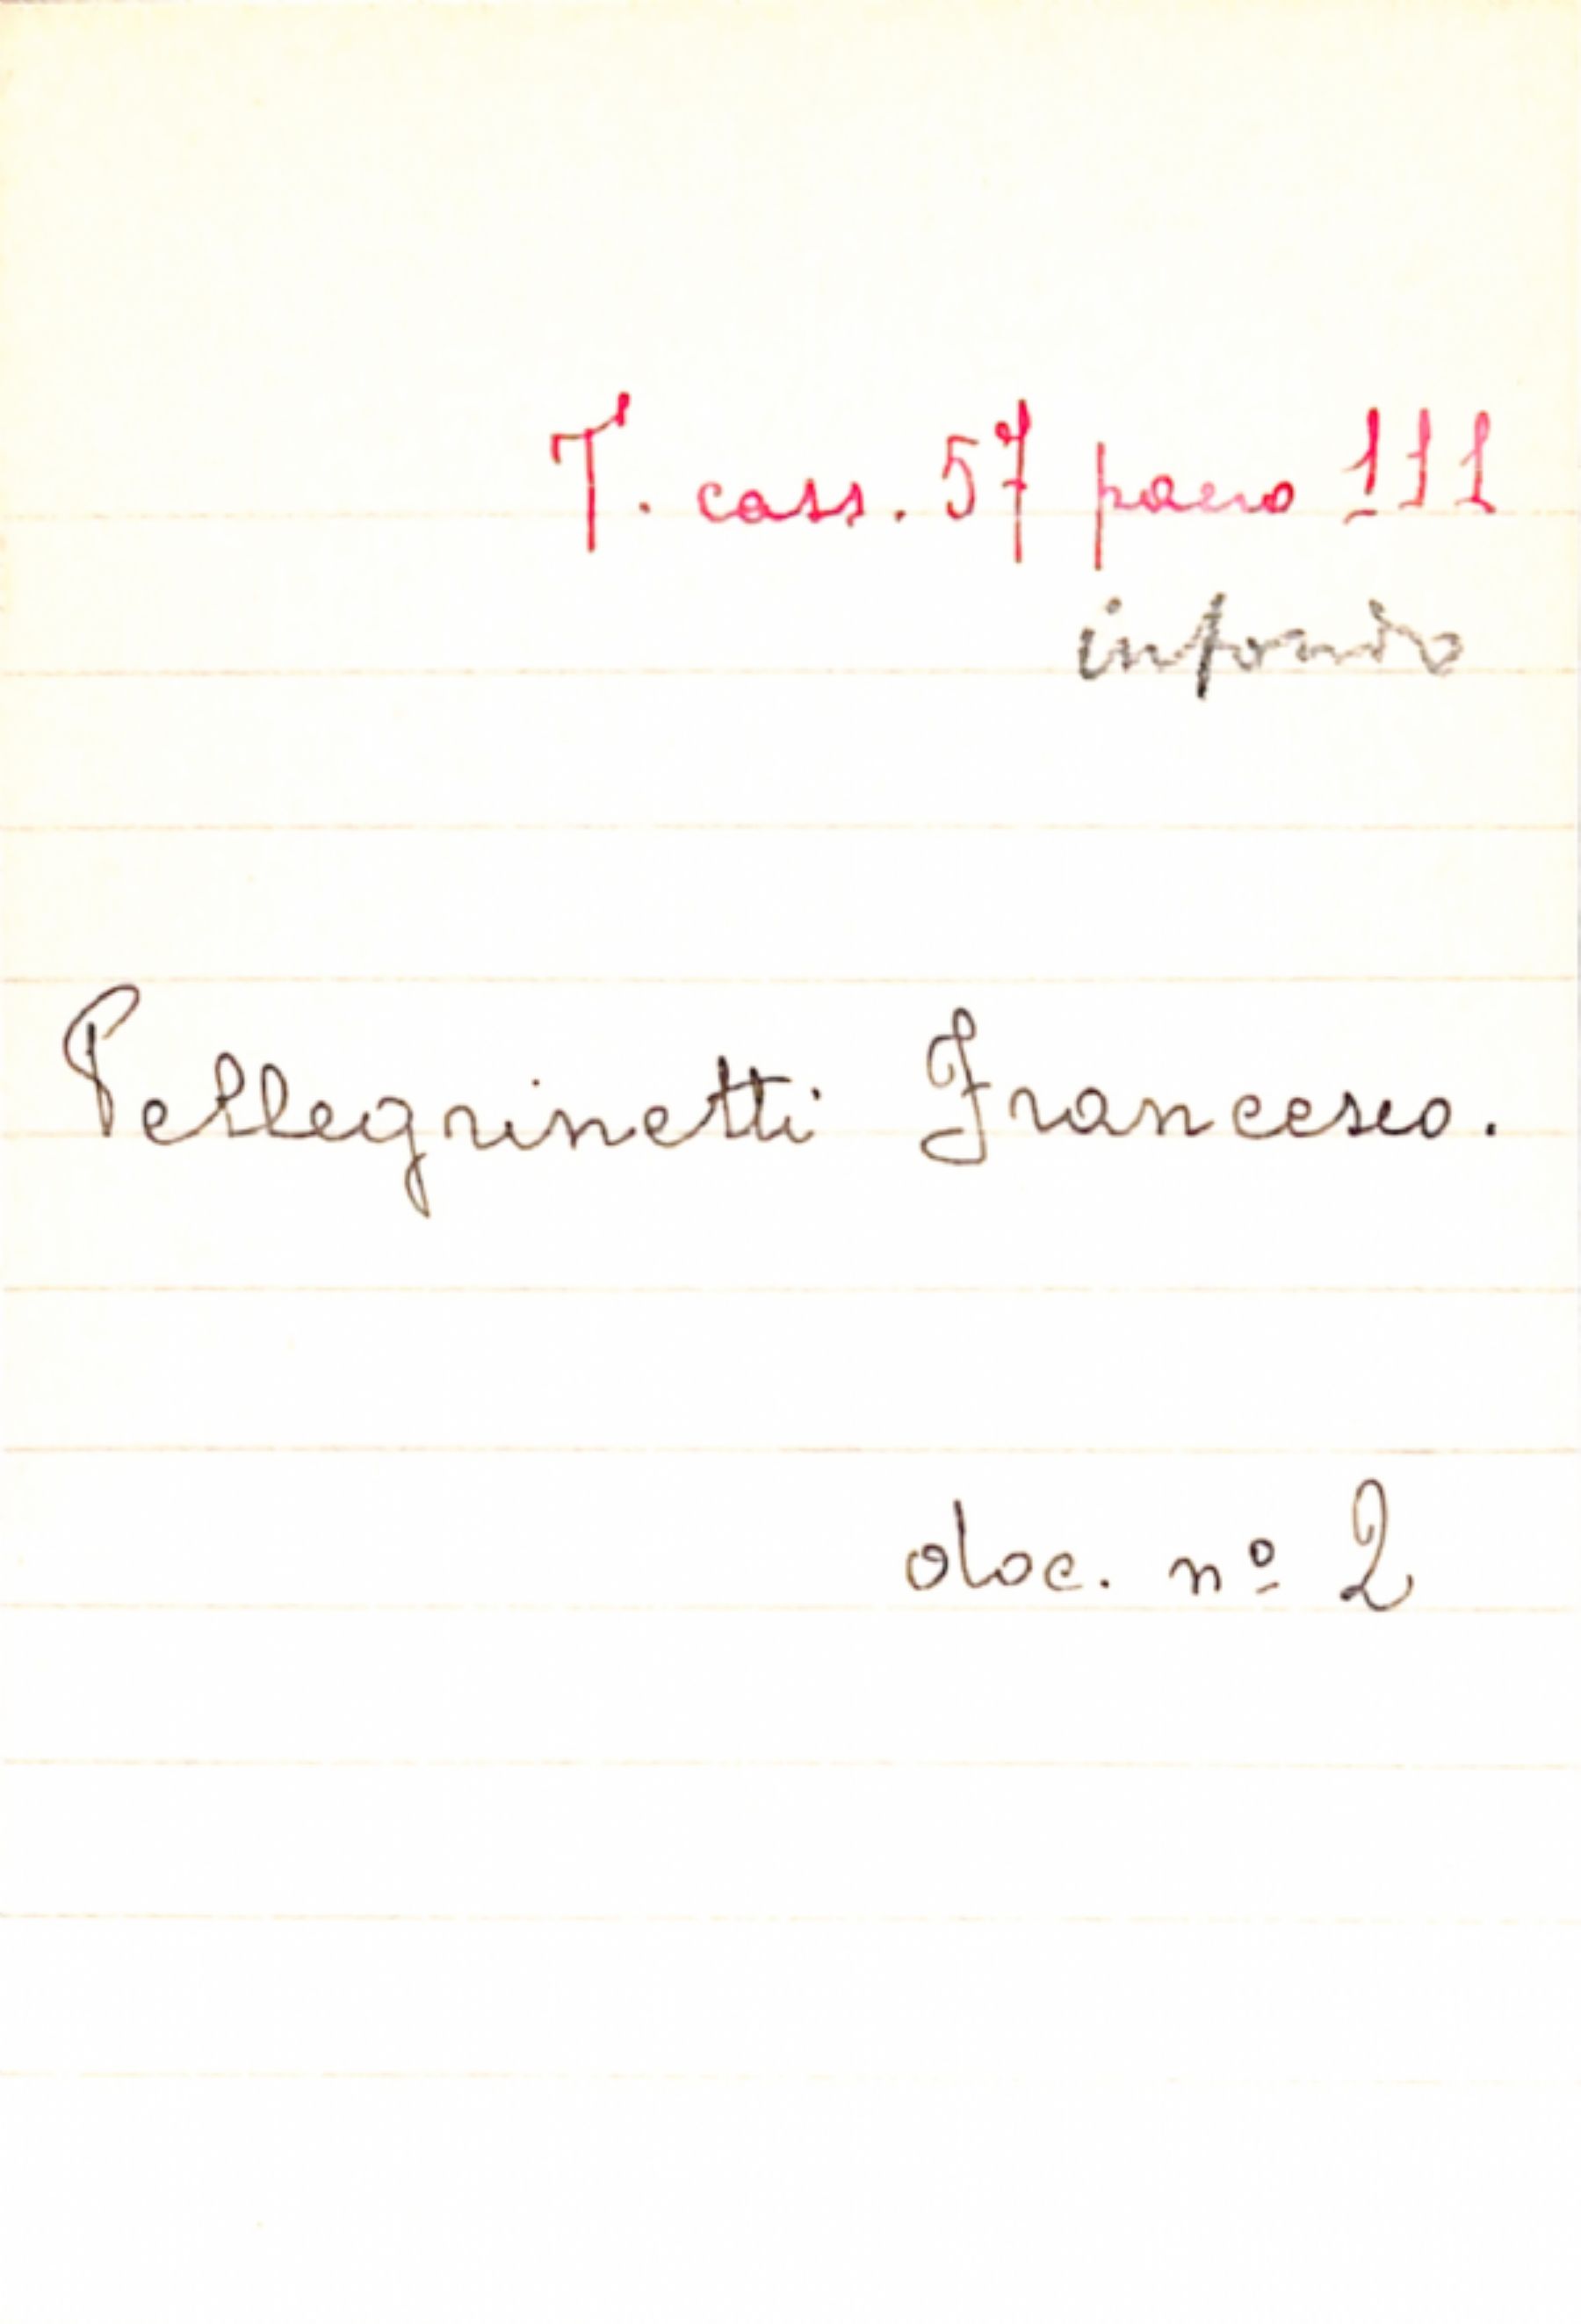 T. cass. 57 pacco 111
in fondo
Pellegrinetti Francesco.
doc. nº 2